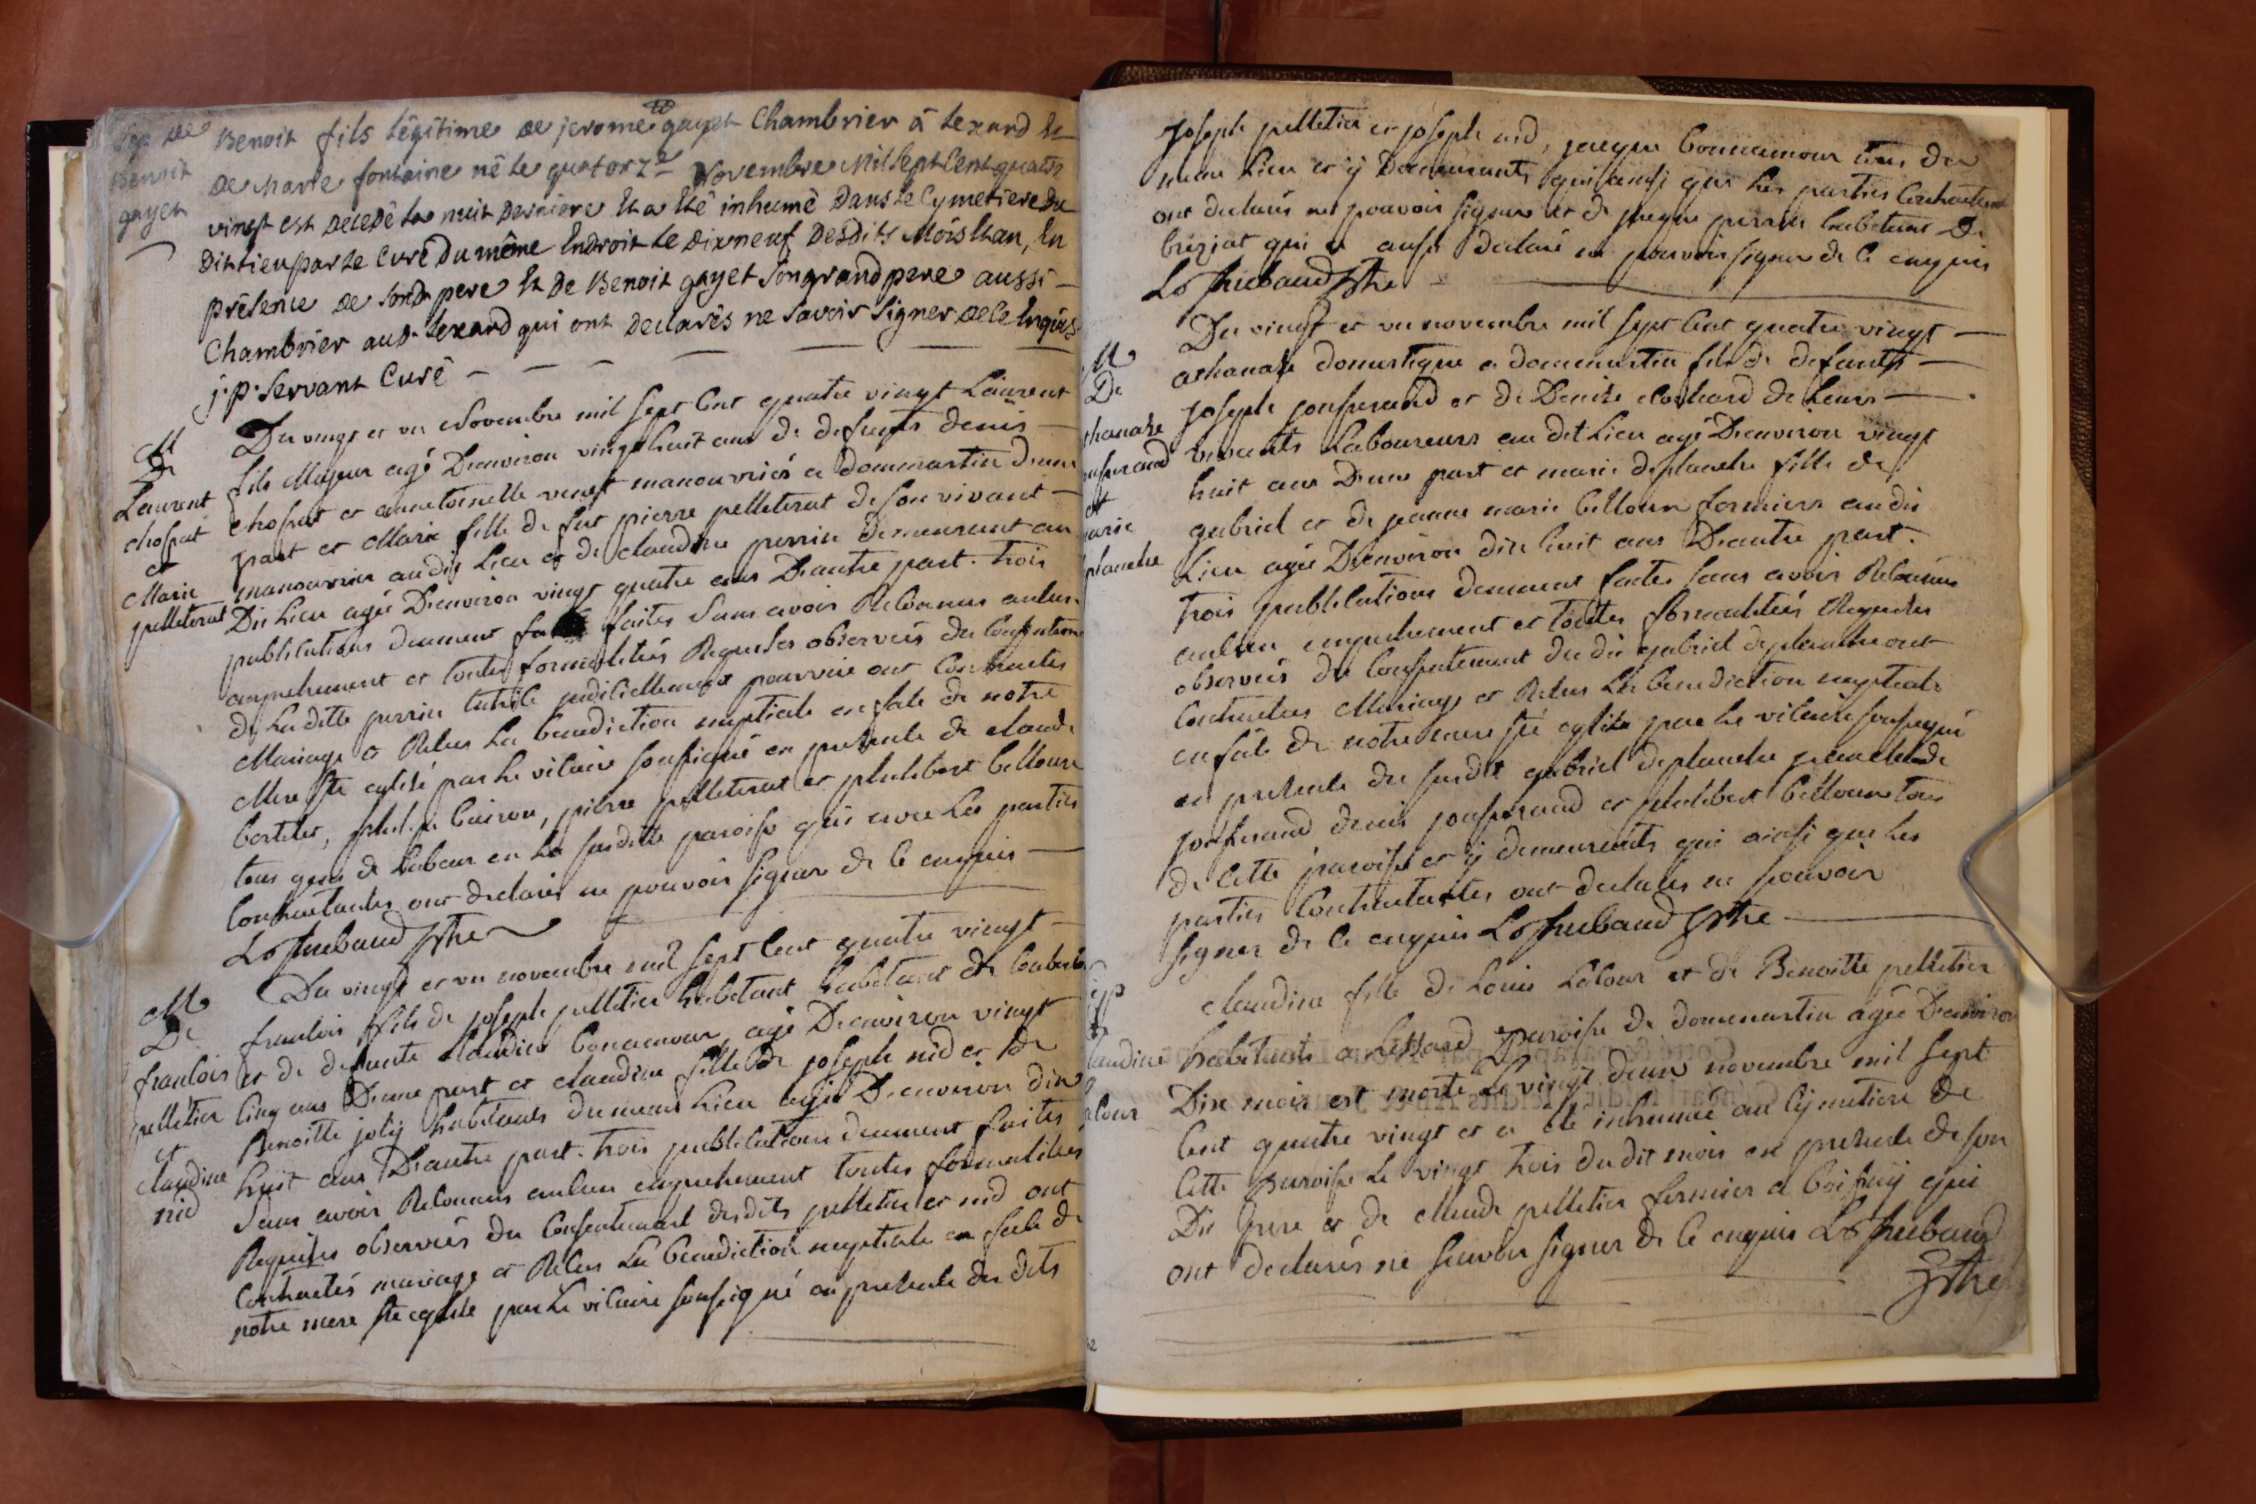 Sep. de
Benoit
gayet
Benoit fils légitime de jerome gayet Chambrier à Lexard Et
de marie fontaine né le quatorze Novembre Mil Sept Cent quatre
vingt est décédé la nuit dernière Et a Eté inhumé dans le Cymetiere du
dit lieu par le Curé du même Endroit le dixneuf desdits Mois Et an, En
présence de sondt pere Et de Benoit gayet son grand pere aussi
Chambrier aud. Lexard qui ont déclarés ne savoir signer de ce Enquis
j. p. Servant Curé
M
De
Laurent
chosset
et
Marie
pelleterat
Du vingt et un Novembre mil sept Cent quatre vingt Laurent
fils Majeur agé D'environ vingt huit ans de defunts denis
chossat et antoinette venet manouvriés a dommartin d'une
part et Marie fille de fut pierre pelleterat de son vivant
manouvrier audit Lieu et de claudine perrin demeurant au
Dit Lieu agée D'environ vingt quatre ans D'autre part. trois
publications duement faites sans avoir Reconnus aucun
empechement et toutes formalités Requises observées du Consentement
de Laditte perrin tutrice judiciellement pourvüe ont Contractés
Mariage et Recus La benediction nuptiale en face de notre
Mere Ste eglise par Le vicaire soussigné en presence de claude
philipe pierre pelleterat et philibert belloux
tous gens de Labeur en La susditte paroisse qui avec Les parties
Contractantes ont declarés ne pouvoir signer de ce enquis
Lo Thiebaud Ptre
M
De
francois
pelletier
et
claudine
nid
Du vingt et un novembre mil sept Cent quatre vingt
francois fils de joseph pelletier habitant habitant de
et de defunte claudine bonnamour agé D'environ vingt
Cinq ans D'une part et claudine fille de joseph nid et de
Benoitte joly habitants du meme Lieu agée D'environ dix
huit ans D'autre part. trois publications duement faites
sans avoir Reconnus aucun empechement toutes formalitées
Requises observées du Consentement desdits pelletier et nid ont
Contractés mariage et Recus La benediction nuptiale en face de
notre mere Ste eglise par Le vicaire soussigné en presence des dits
joseph pelletier et joseph nid, jacque bonnamour tous du
meme Lieu et y Demeurants qui ainsi que Les parties Contractantes
ont declarés ne pouvoir signer et de jacque perrin habitant De
brizjat qui a aussi declaré ne pouvoir signer de ce enquis
Lo Thiebaud Ptre
M
De
thanaze
et
marie
planche
Du vingt et un novembre mil sept Cent quatre vingt
athanaze domestique a dommartin fils de defunts
joseph jousserand et de Denise de Leurs
vivants Laboureurs au dit Lieu agé D'environ vingt
huit ans D'une part et marie deplanche fille de
gabriel et de jeanne marie belloux fermiers audit
Lieu agée D'environ dix huit ans D'autre part.
trois publications duement faites sans avoir Reconnu
aucun empechement et touttes formalitées Requises
observées du Consentement du dit gabriel deplanche ont
Contractés Mariage et Recus La benediction nuptiale
en face de notre mere Ste eglise par Le vicaire soussigné
en presence du susdit gabriel deplanche
jousserand denis jousserand et philibert belloux tous
de cette paroisse et y demeurants qui ainsi que Les
parties Contractantes ont declarés ne pouvoir
signer de ce enquis Lo Thiebaud Ptre
claudine
latour
claudine fille de Louis Latour et de Benoitte pelletier
habitants a Lessard paroisse de dommartin agée D'environ
Dix mois est morte Le vingt deux novembre mil sept
Cent quatre vingt et a été inhumée au Cymetiere de
Cette paroisse Le vingt trois du dit mois en presence de son
Dit pere et de claude pelletier fermier a qui
ont declarés ne scavoir signer de ce enquis Lo Thiebaud
Ptre